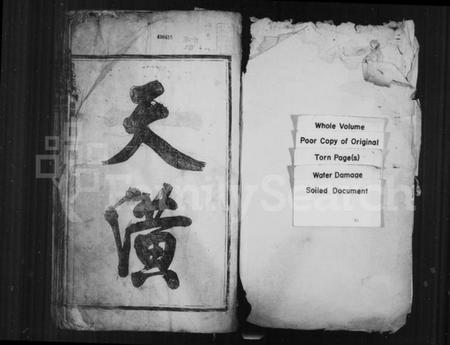 天
潢
Whole Volume
Poor Copy of Original
Torn Page(s)
Water Damage
Soiled Document
FamilySearch